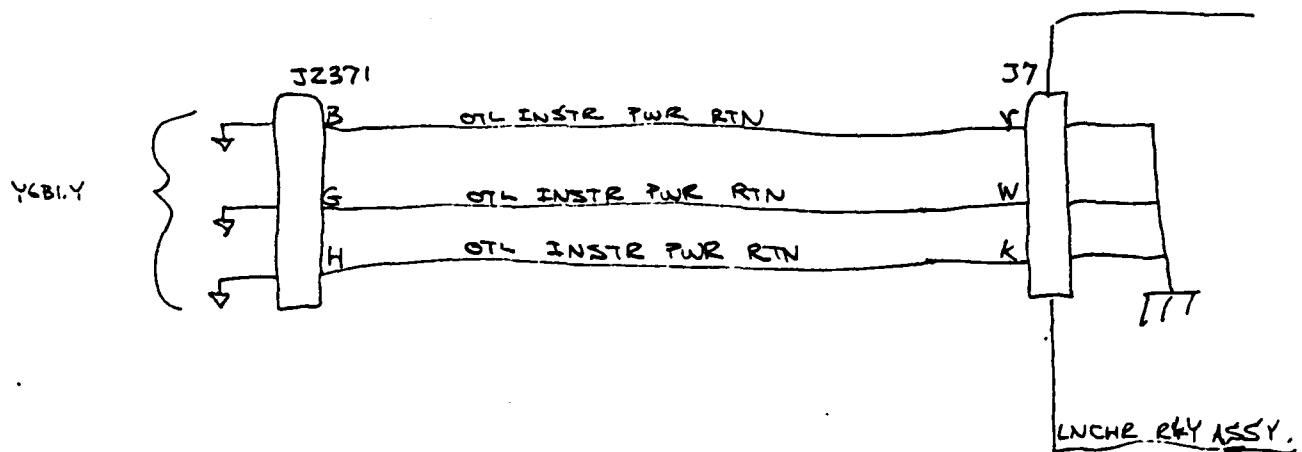 J2371
J7
B OTL INSTR PWR RTN r
Y6B1.Y
G OTL INSTR PWR RTN W
H OTL INSTR PWR RTN k
LNCHR RLY ASSY.